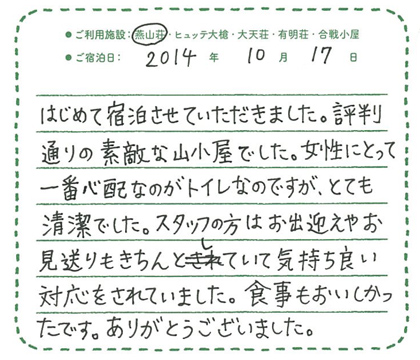 ● ご利用施設：燕山荘・ヒュッテ大槍・大天荘・有明荘・合戦小屋
● ご宿泊日： 2014 年 10 月 17 日
はじめて宿泊させていただきました。評判
通りの素敵な山小屋でした。女性にとって
一番心配なのがトイレなのですが、とても
清潔でした。スタッフの方はお出迎えやお
見送りもきちんとしていて気持ち良い
対応をされていました。食事もおいしかっ
たです。ありがとうございました。